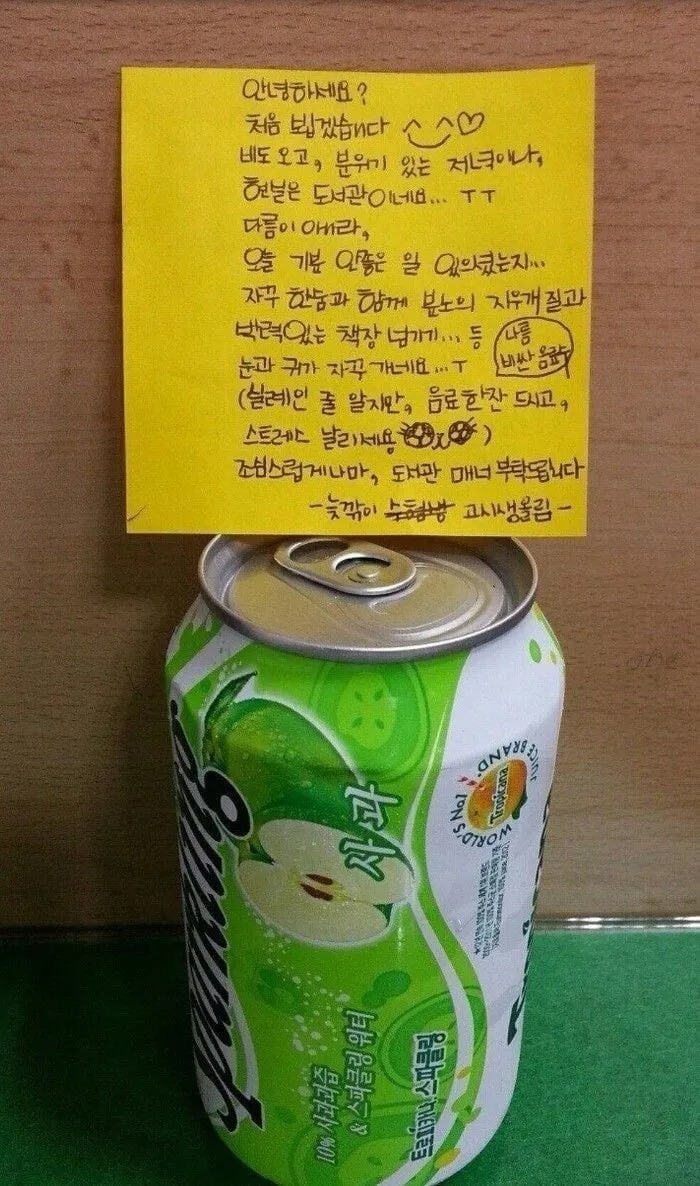 안녕하세요?
처음 뵙겠습니다 ^_^♡
비도 오고, 분위기 있는 저녁이나,
현실은 도서관이네요... ㅜㅜ
다름이 아니라,
오늘 기분 안좋은 일 있으셨는지...
자꾸 한숨과 함께 분노의 지우개질과
박력있는 책장 넘기기... 등
눈과 귀가 자꾸 가네요...ㅜ
나름
비싼 음료
(실례인 줄 알지만, 음료한잔 드시고,
스트레스 날리세용)
조심스럽게나마, 도서관 매너 부탁드립니다
-늦깎이 수험생 고시생올림-
Sparkling
사과
10% 사과과즙
& 스파클링 워터
트로피카나 스파클링
WORLD'S No.1 JUICE BRAND.
Tropicana